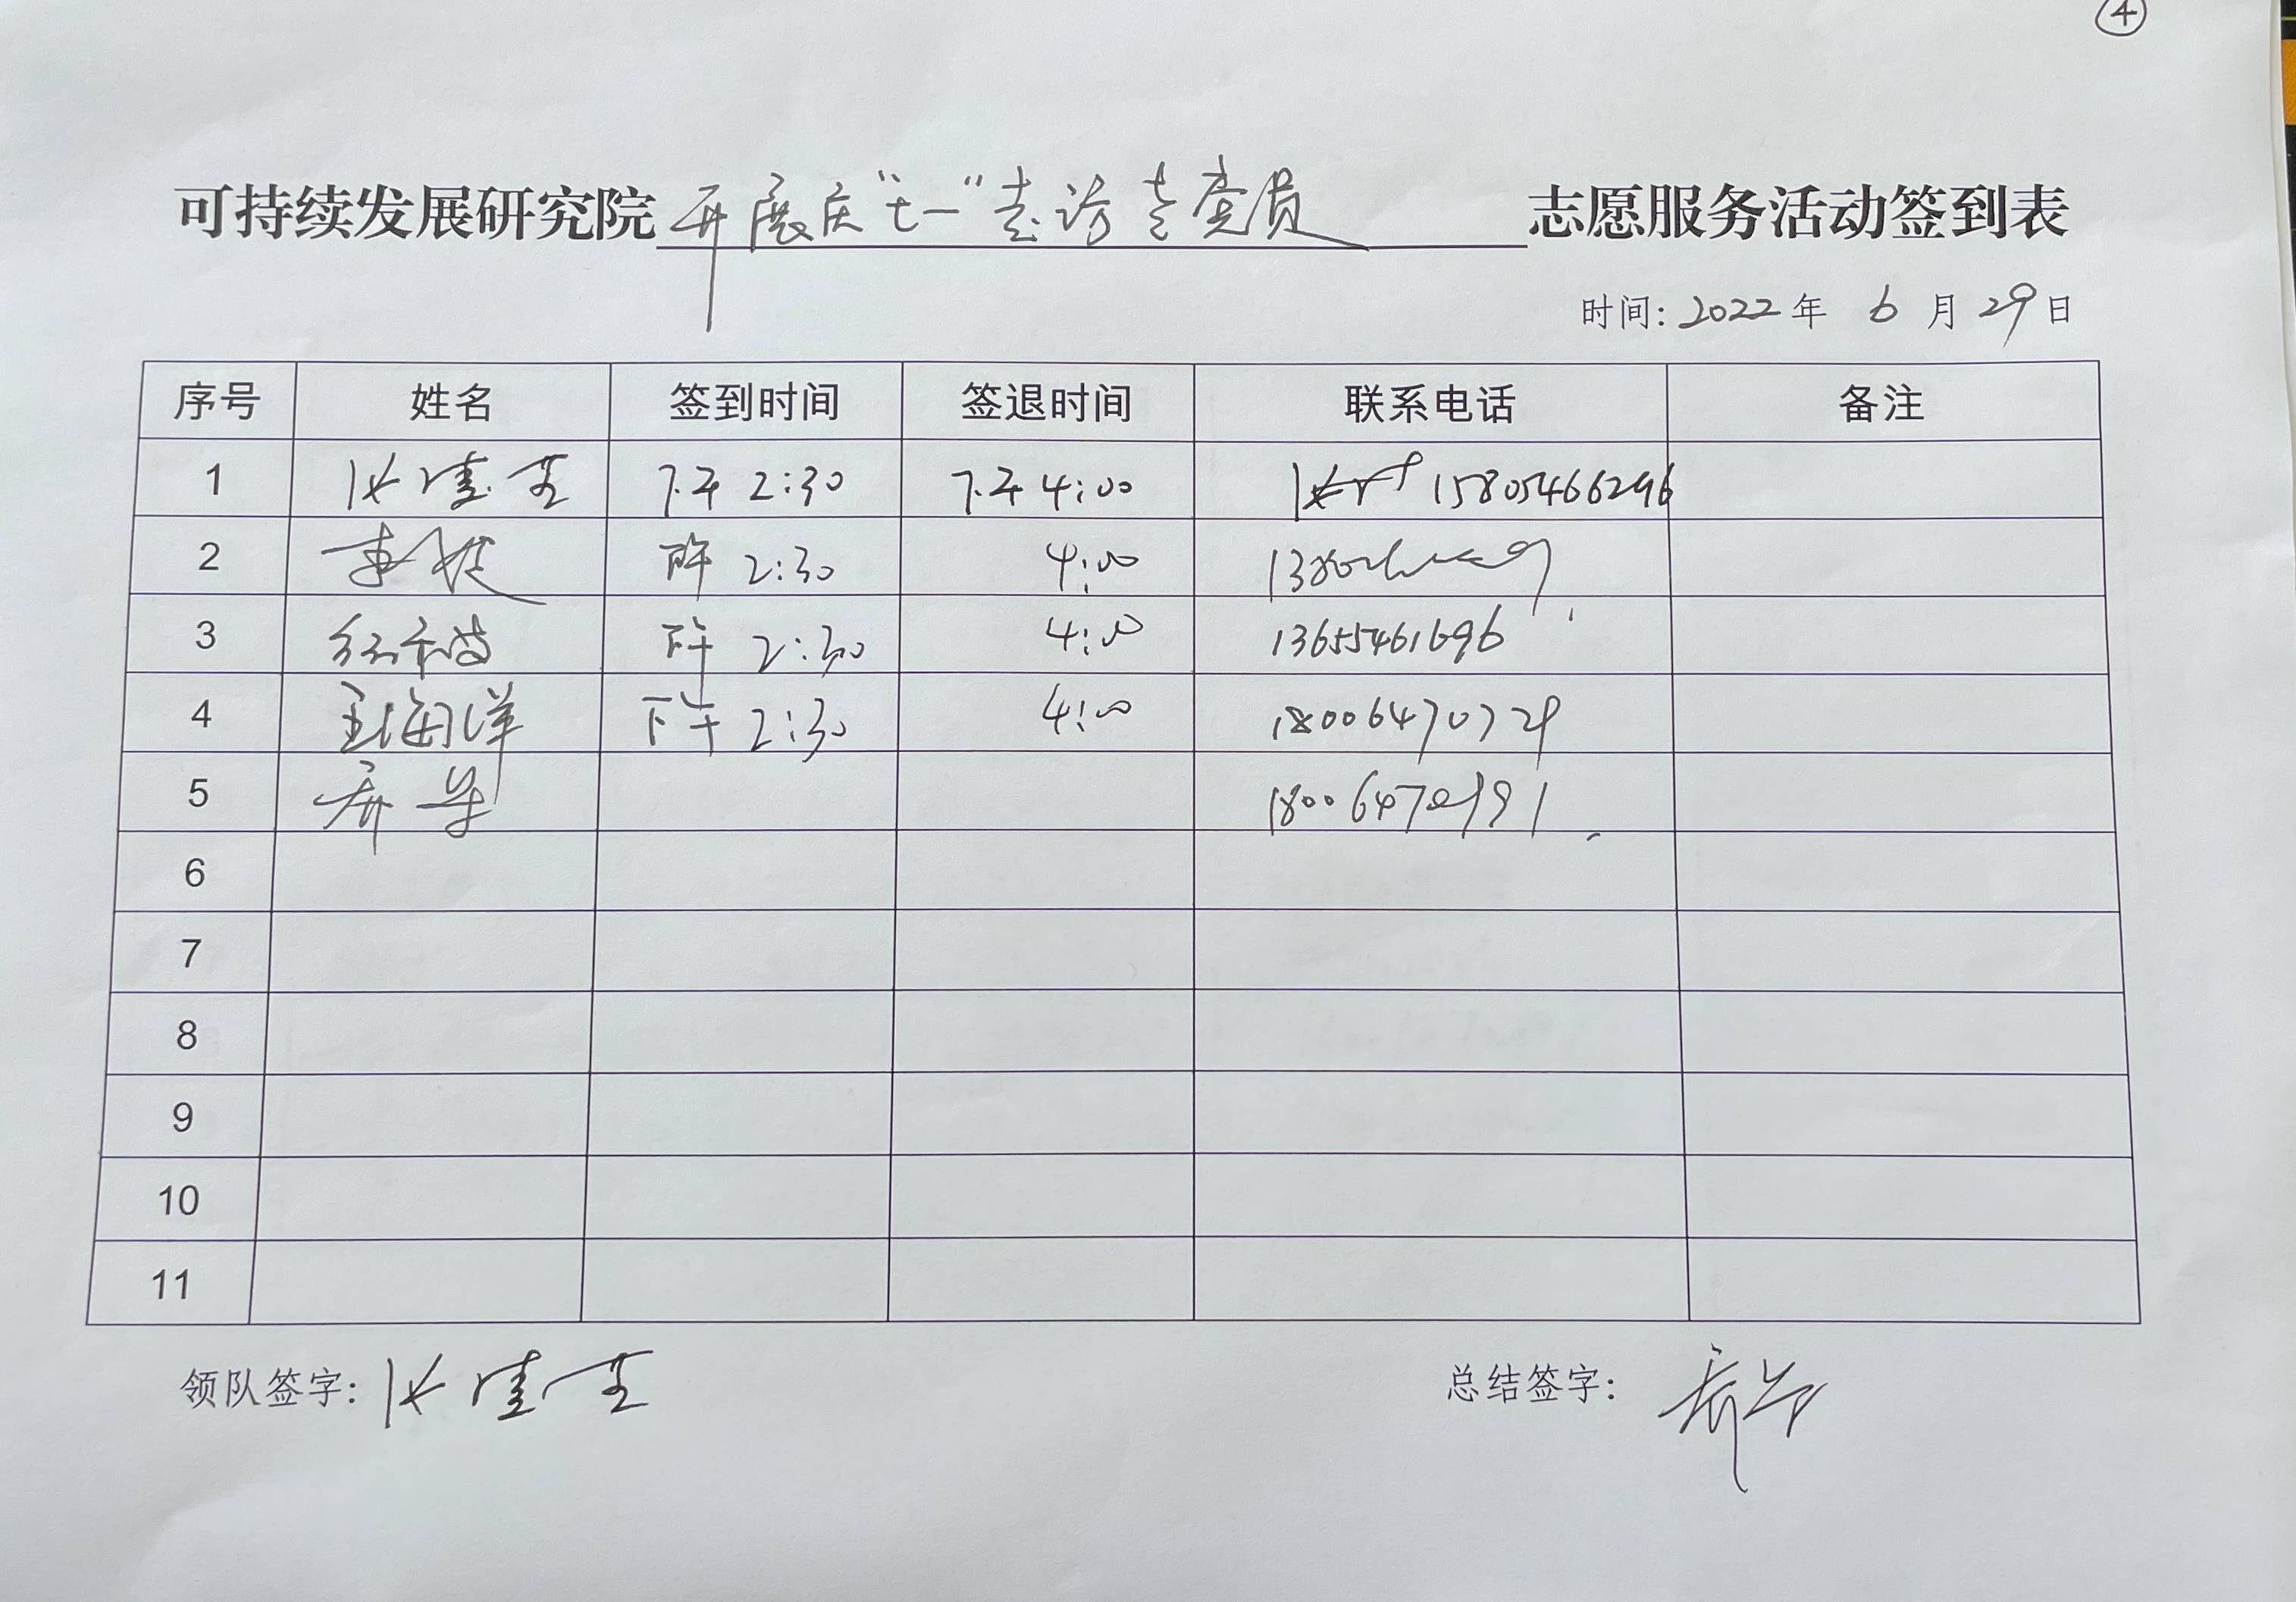 ④
可持续发展研究院开展庆“七一”走访老党员志愿服务活动签到表
时间: 2022年 6月29日
序号 姓名 签到时间 签退时间 联系电话 备注
1 下午 2:30 下午 4:00 15805466296
2 下午 2:30 4:00
3 下午 2:30 4:00 13655461696
4 海洋 下午 2:30 4:00 18006470729
5
6
7
8
9
10
11
领队签字:
总结签字: